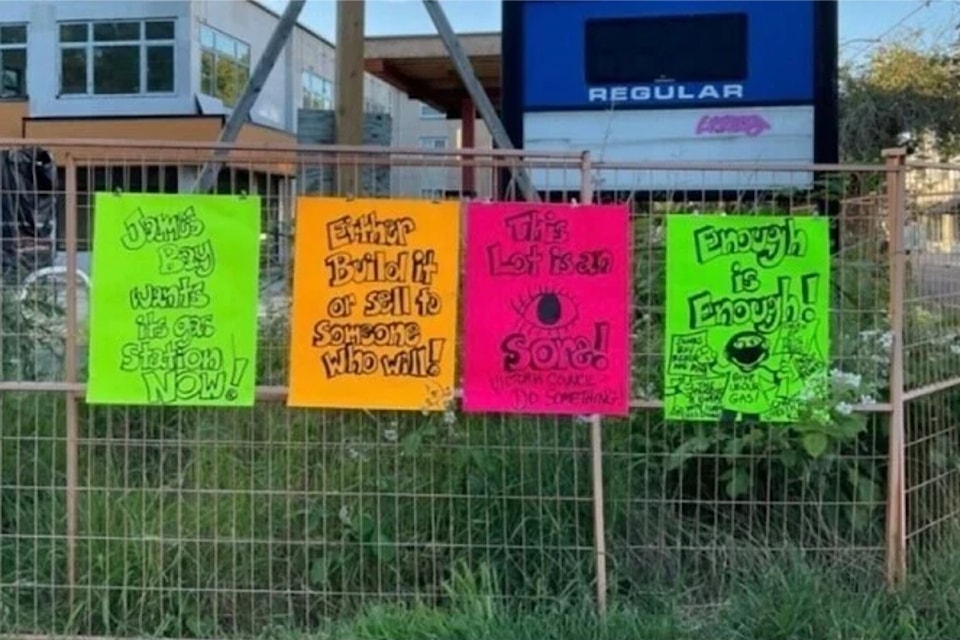 REGULAR
James
Bay
wants
its gas
station
NOW!
Either
Build it
or sell to
someone
who will!
This
Lot is an
Sore!
VICTORIA COUNCIL
DO SOMETHING!
Enough
is
Enough!
GAS!